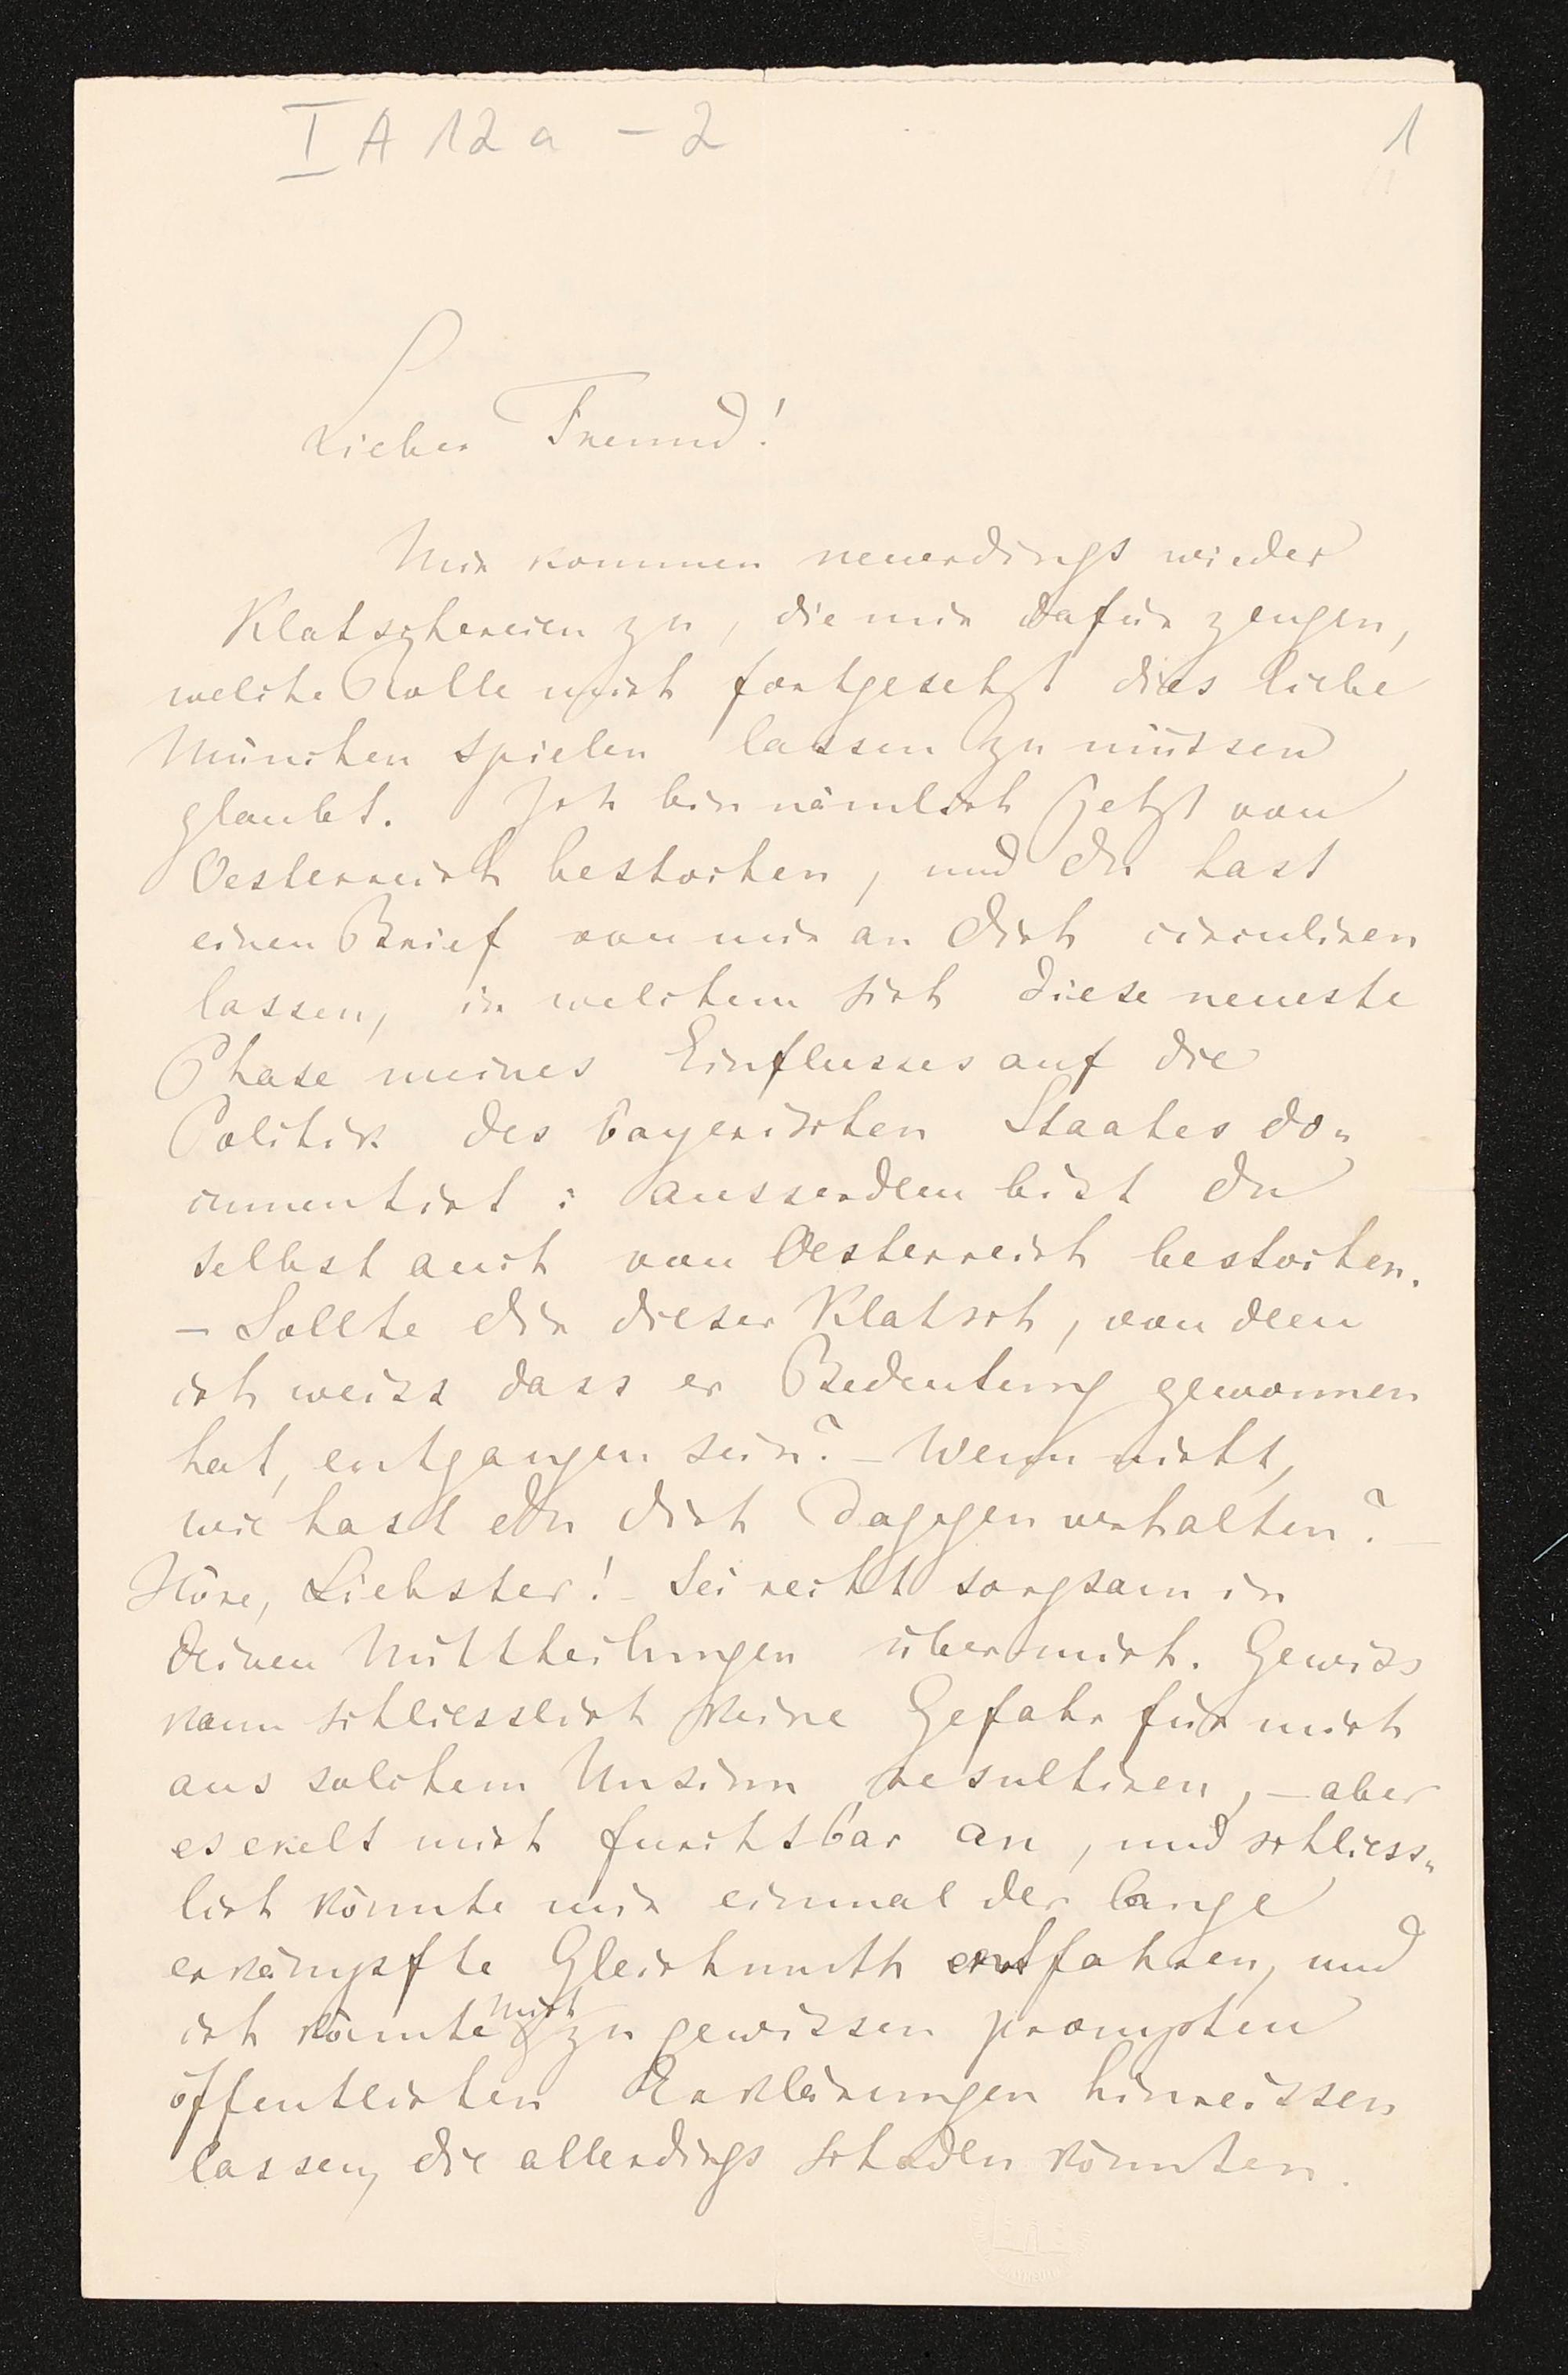 I A 12 a - 2
1
Lieber Freund!
Mir kommen neuerdings wieder
Klatschereien zu, die mir dafür zeugen,
welche Rolle mich fortgesetzt dies liebe
München spielen lassen zu müssen
glaubt. Ich bin nämlich jetzt von
Oesterreich bestochen, und Du hast
einen Brief von mir an Dich circuliren
lassen, in welchem sich diese neueste
Phase meines Einflusses auf die
Politik des bayerischen Staates do„
cumentirt: ausserdem bist Du
selbst auch von Oesterreich bestochen.
– Sollte Dir dieser Klatsch, von dem
ich weiss dass er Bedeutung gewonnen
hat, entgangen sein? – Wenn nicht,
wie hast Du Dich dagegen verhalten? –
Höre, Liebster! – Sei recht sorgsam in
Deinen Mittheilungen über mich. Gewiss
kann schliesslich keine Gefahr für mich
aus solchem Unsinn resultiren, – aber
es ekelt mich furchtbar an, und schliess„
lich könnte mir einmal der lange
erkämpfte Gleichmuth entfahren, und
ich könnte mich zu gewissen prompten
öffentlichen Erklärungen hinreissen
lassen, die allerdings schaden könnten.